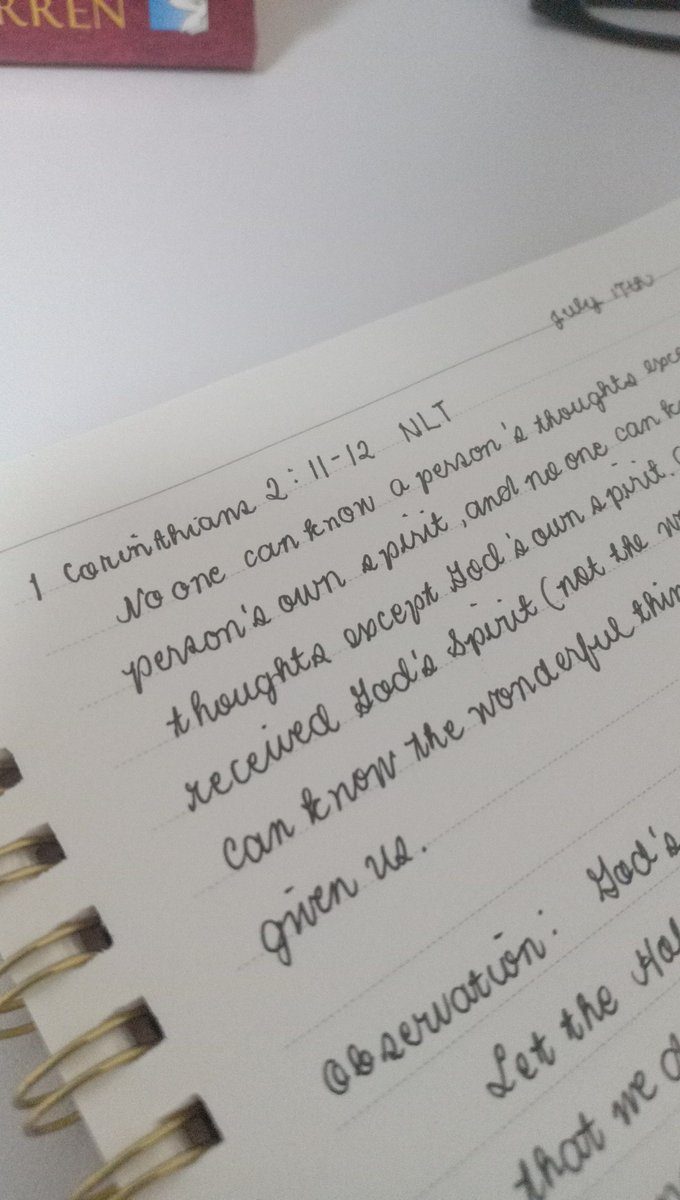 RREN
July 17th
1 Corinthians 2:11-12 NLT
No one can know a person's thoughts exce
person's own spirit, and no one can k
thoughts except God's own spirit.
received God's Spirit (not the w
can know the wonderful thin
given us.
Observation: God's
Let the Hol
that we d